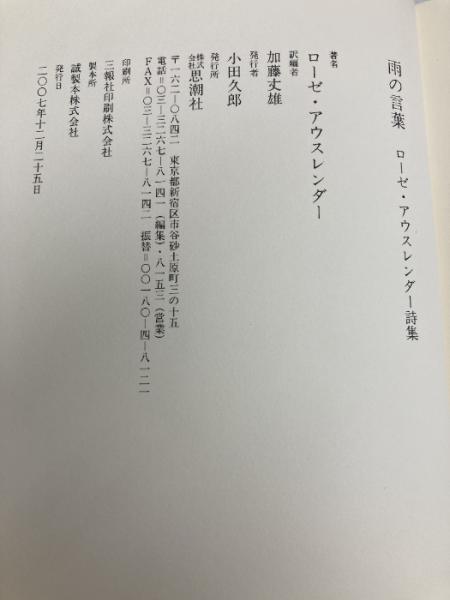 雨の言葉　ローゼ・アウスレンダー詩集
著者
ローゼ・アウスレンダー
訳編者
加藤丈雄
発行者
小田久郎
発行所
株式会社思潮社
〒一六二―〇八四二　東京都新宿区市谷砂土原町三の十五
電話=〇三―三二六七―八一四一（編集）・八一五三（営業）
ＦＡＸ=〇三―三二六七―八一四二　振替=〇〇一八〇―四―八一二一
印刷所
三報社印刷株式会社
製本所
誠製本株式会社
発行日
二〇〇七年十二月二十五日